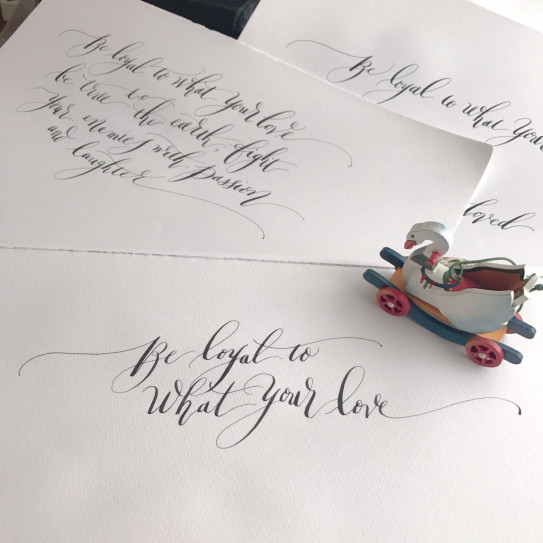 Be loyal to what your love
be true to the earth, fight
Your enemies with passion
and laughter
Be loyal to what your
loved
Be loyal to
What your love